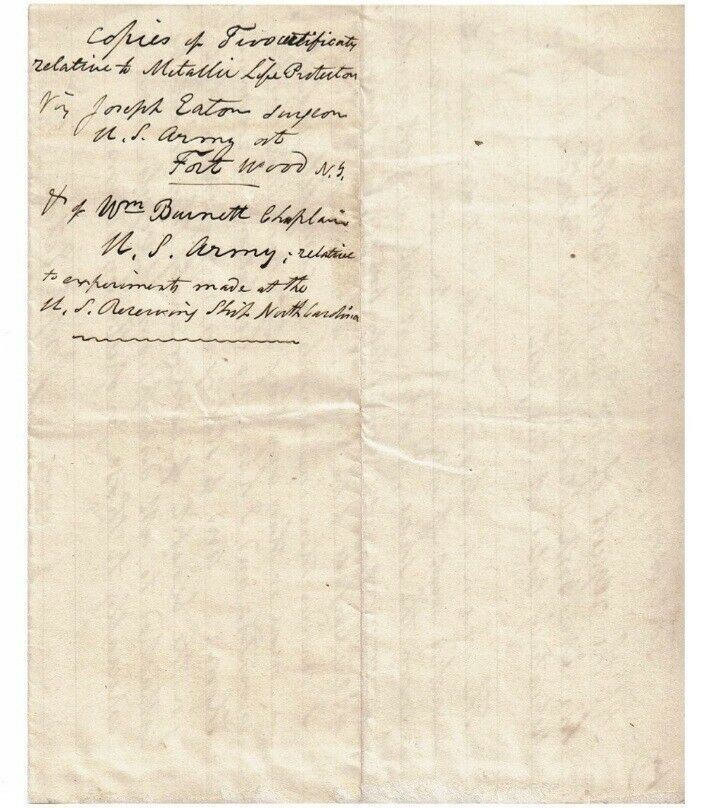 Copies of Two certificates
relative to Metallic Life Protector
Viz Joseph Eaton Surgeon
U.S. Army at
Fort Wood N.Y.
& of Wm Burnett Chaplain
U.S. Army; relative
to experiments made at the
U.S. Receiving Ship North Carolina